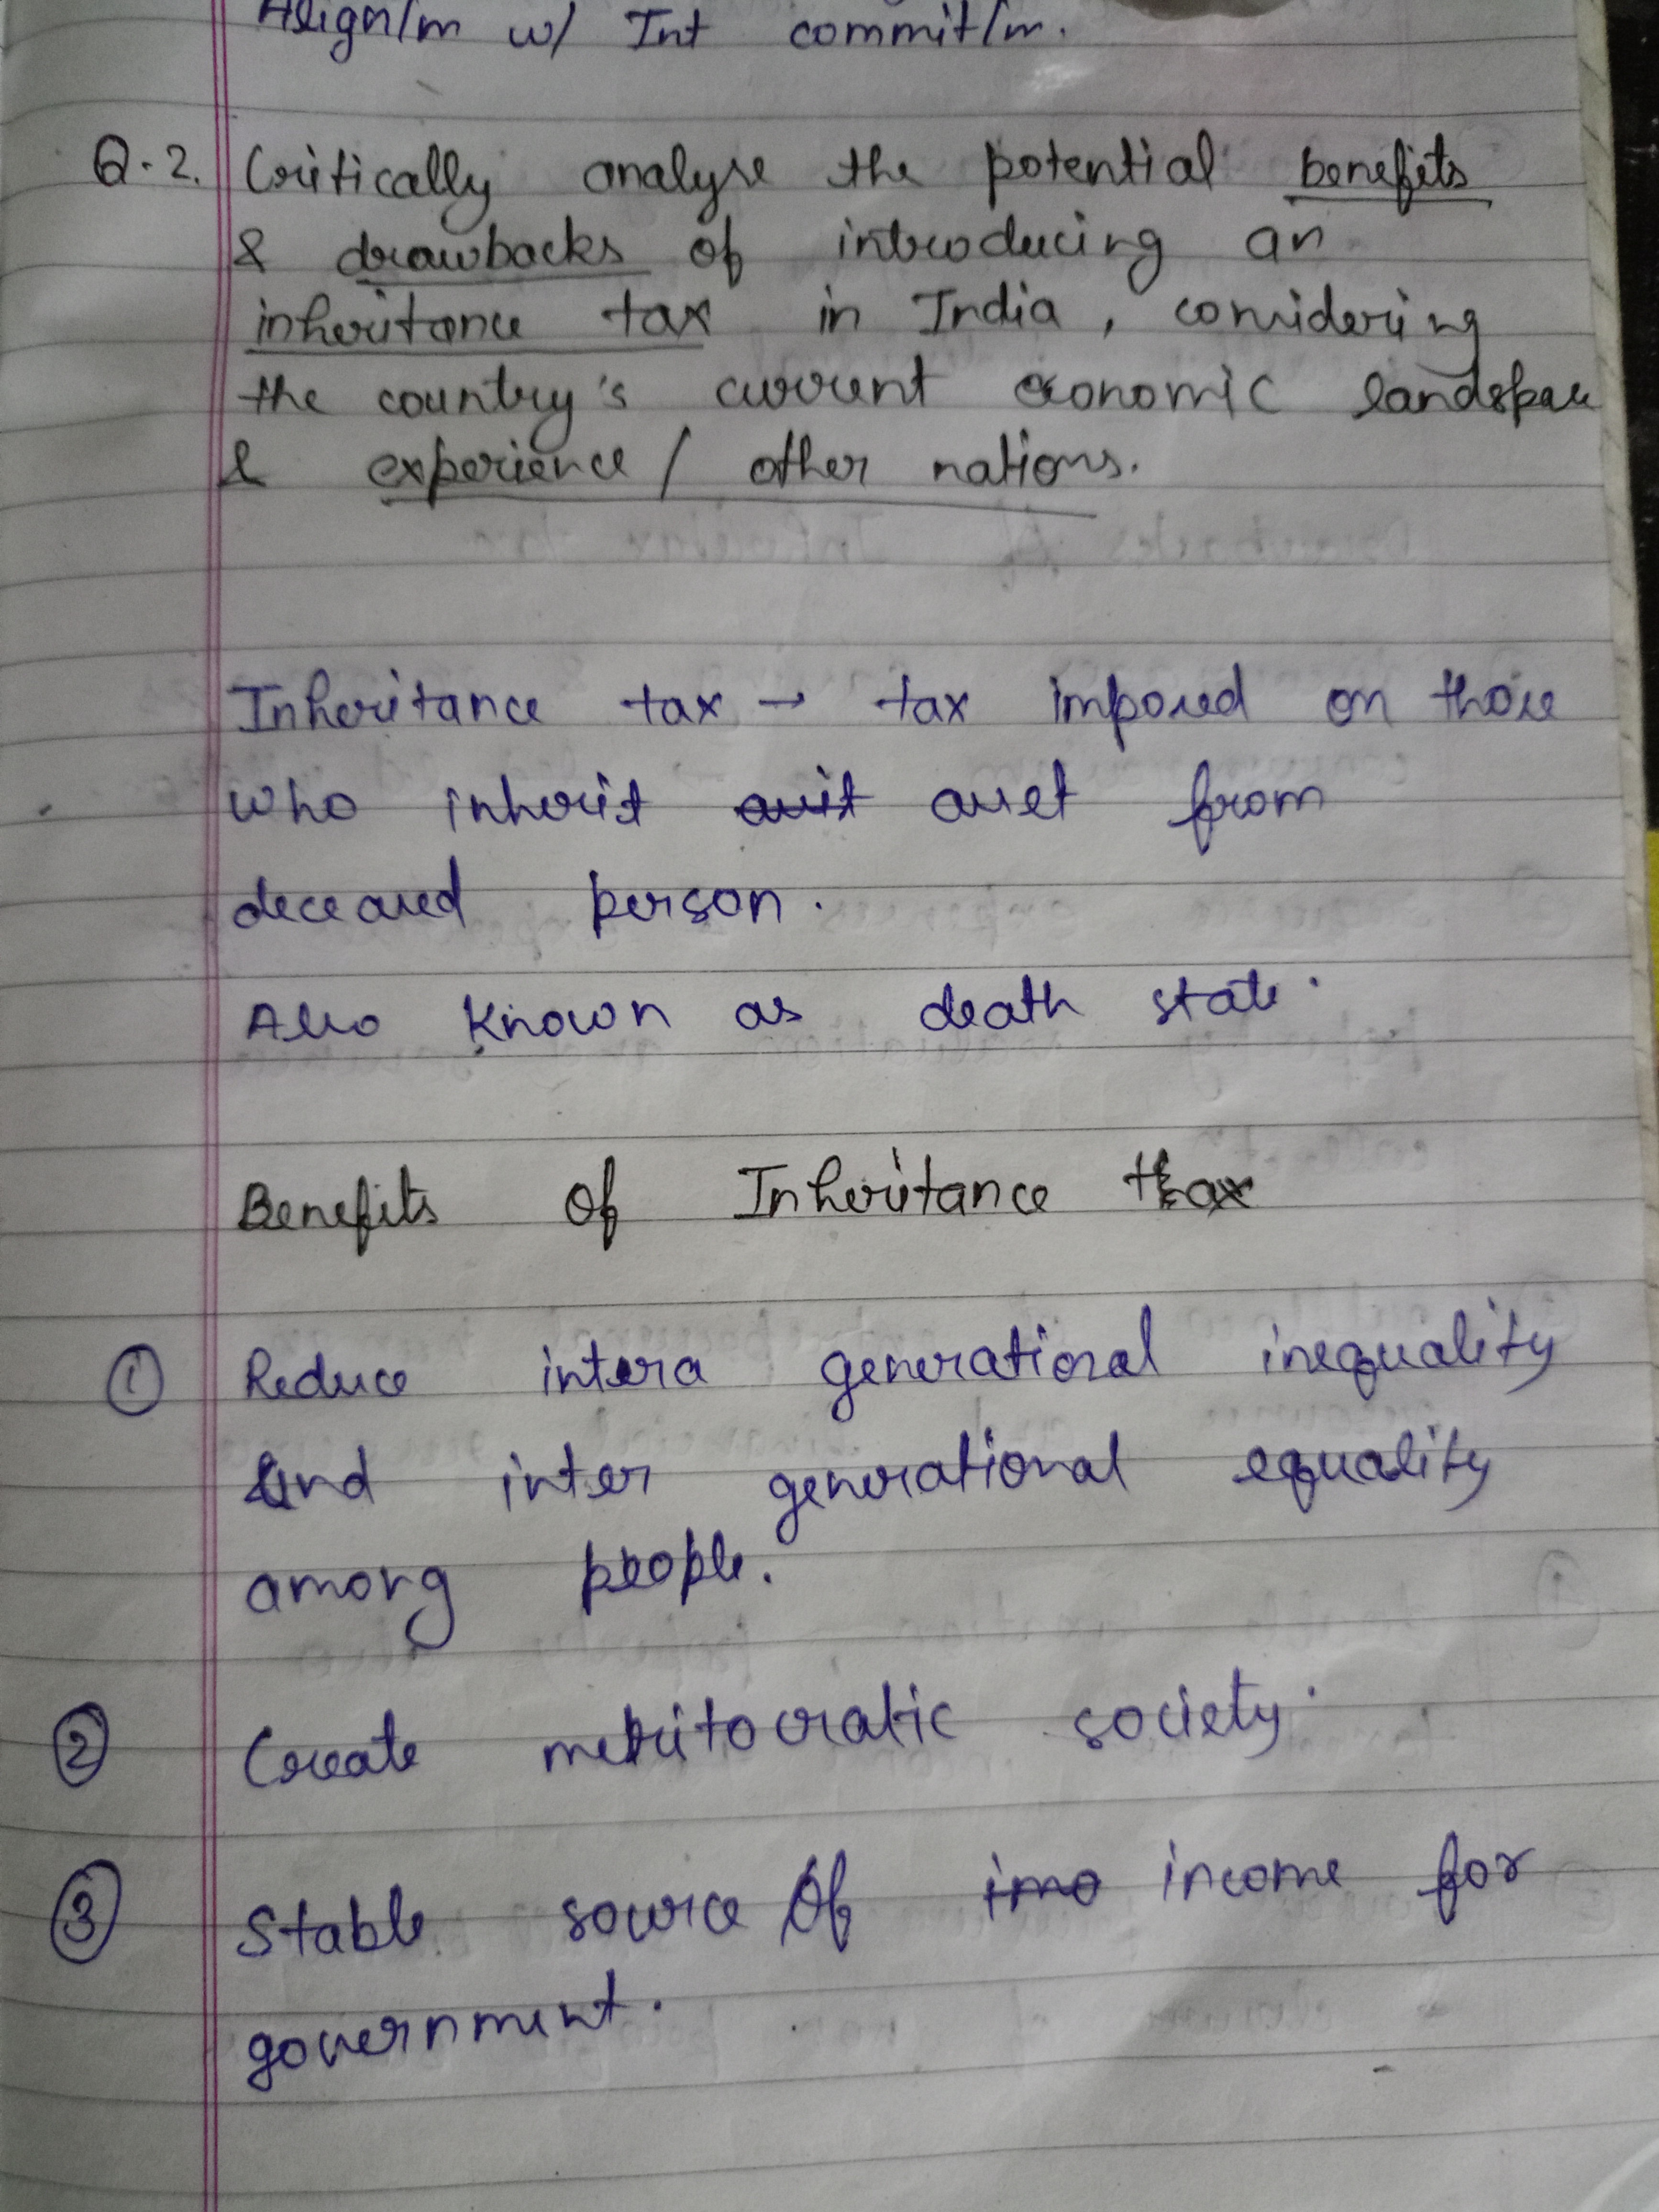 Align/m w/ Int commit/m.
Q.2. Critically analyse the potential benefits
& drawbacks of introducing an
inheritance tax in India, considering
the country's current economic landspace
& experience / other nations.
Inheritance tax → tax imposed on those
who inherit asset from
deceased person.
Also known as death state.
Benefits of Inheritance tax
① Reduce intera generational inequality
and inter generational equality
among people.
② Create meritocratic society.
③ Stable source of imo income for
government.